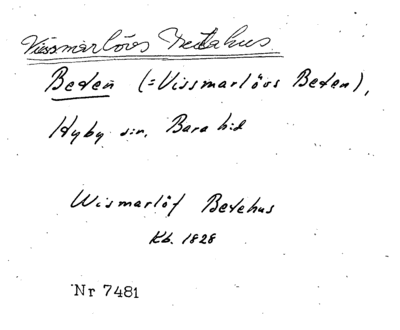 Vissmarlövs Betahus
Beten (=Vissmarlövs Beten),
Hyby sn, Bara hd
Wismarlöf Betehus
Kb. 1828
Nr 7481